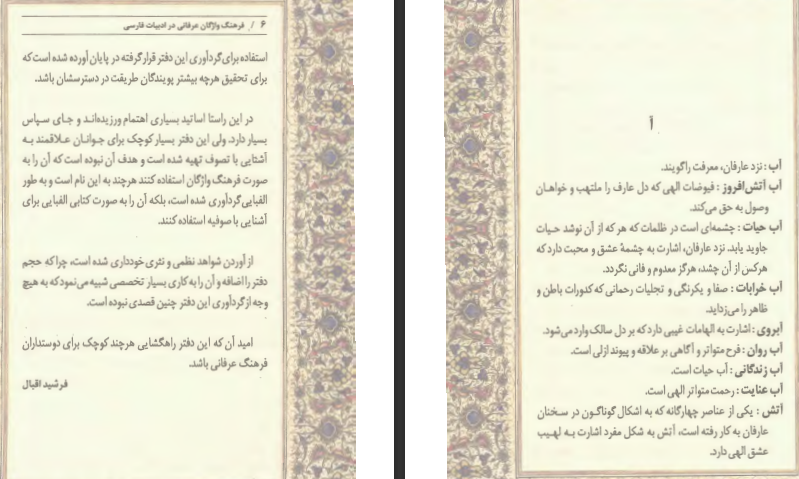 ۶ / فرهنگ واژگان عرفانی در ادبیات فارسی
استفاده برای گردآوری این دفتر قرار گرفته در پایان آورده شده است که
برای تحقیق هرچه بیشتر پویندگان طریقت در دسترسشان باشد.
در این راستا اساتید بسیاری اهتمام ورزیده‌اند و جای سپاس
بسیار دارد. ولی این دفتر بسیار کوچک برای جوانان علاقمند به
آشنایی با تصوف تهیه شده است و هدف آن نبوده است که آن را به
صورت فرهنگ واژگان استفاده کنند هرچند به این نام است و به طور
الفبایی گردآوری شده است، بلکه آن را به صورت کتابی الفبایی برای
آشنایی با صوفیه استفاده کنند.
از آوردن شواهد نظمی و نثری خودداری شده است، چرا که حجم
دفتر را اضافه و آن را به کاری بسیار تخصصی شبیه می‌نمود که به هیچ
وجه از گردآوری این دفتر چنین قصدی نبوده است.
امید آن که این دفتر راهگشایی هرچند کوچک برای دوستداران
فرهنگ عرفانی باشد.
فرشید اقبال
آ
آب : نزد عارفان، معرفت را گویند.
آب آتش‌افروز : فیوضات الهی که دل عارف را ملتهب و خواهان
وصول به حق می‌کند.
آب حیات : چشمه‌ای است در ظلمات که هر که از آن نوشد حیات
جاوید یابد. نزد عارفان، اشارت به چشمهٔ عشق و محبت دارد که
هرکس از آن چشد، هرگز معدوم و فانی نگردد.
آب خرابات : صفا و یکرنگی و تجلیات رحمانی که کدورات باطن و
ظاهر را می‌زداید.
آبروی : اشارت به الهامات غیبی دارد که بر دل سالک وارد می‌شود.
آب روان : فرح متواتر و آگاهی بر علاقه و پیوند ازلی است.
آب زندگانی : آب حیات است.
آب عنایت : رحمت متواتر الهی است.
آتش : یکی از عناصر چهارگانه که به اشکال گوناگون در سخنان
عارفان به کار رفته است، آتش به شکل مفرد اشارت به لهیب
عشق الهی دارد.